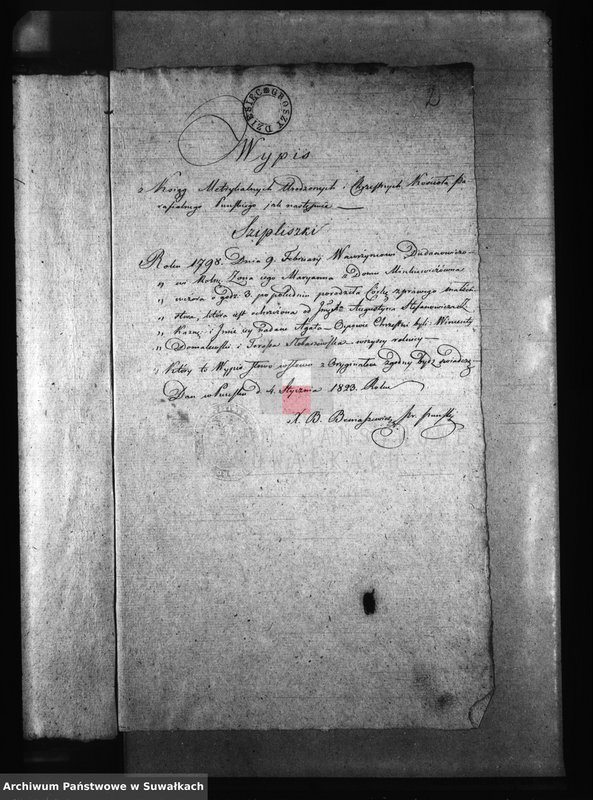 DZIESIĘĆ GROSZY
2
Wypis
z Xsiąg Metrykalnych Urodzonych i Chrzestnych Kościoła Pa
rafialnego Puńskiego jak następuie
Szipliszki
Roku 1798. Dnia 9. Februarij Wawrzyniowi Dudanowiczo-
" wi Rolni: Żona iego Maryanna z Domu Minkiewiczówna
" wczora o godz: 3. po południu porodziła Córkę zprawego małżeń-
" stwa, która iest ochrzczona od Augustyna Stefanowicza
" Kazno: i Jmie iey nadane Agata Chrzestni byli: Wincenty
" Domalewski i Teressa wszyscy rolnicy
Który to Wypis słowo wsłowo z Oryginałem zgodny bydz świadczę
Dan w Puńsku d. 4. Stycznia 1823. Roku
X. B.
Archiwum Państwowe w Suwałkach